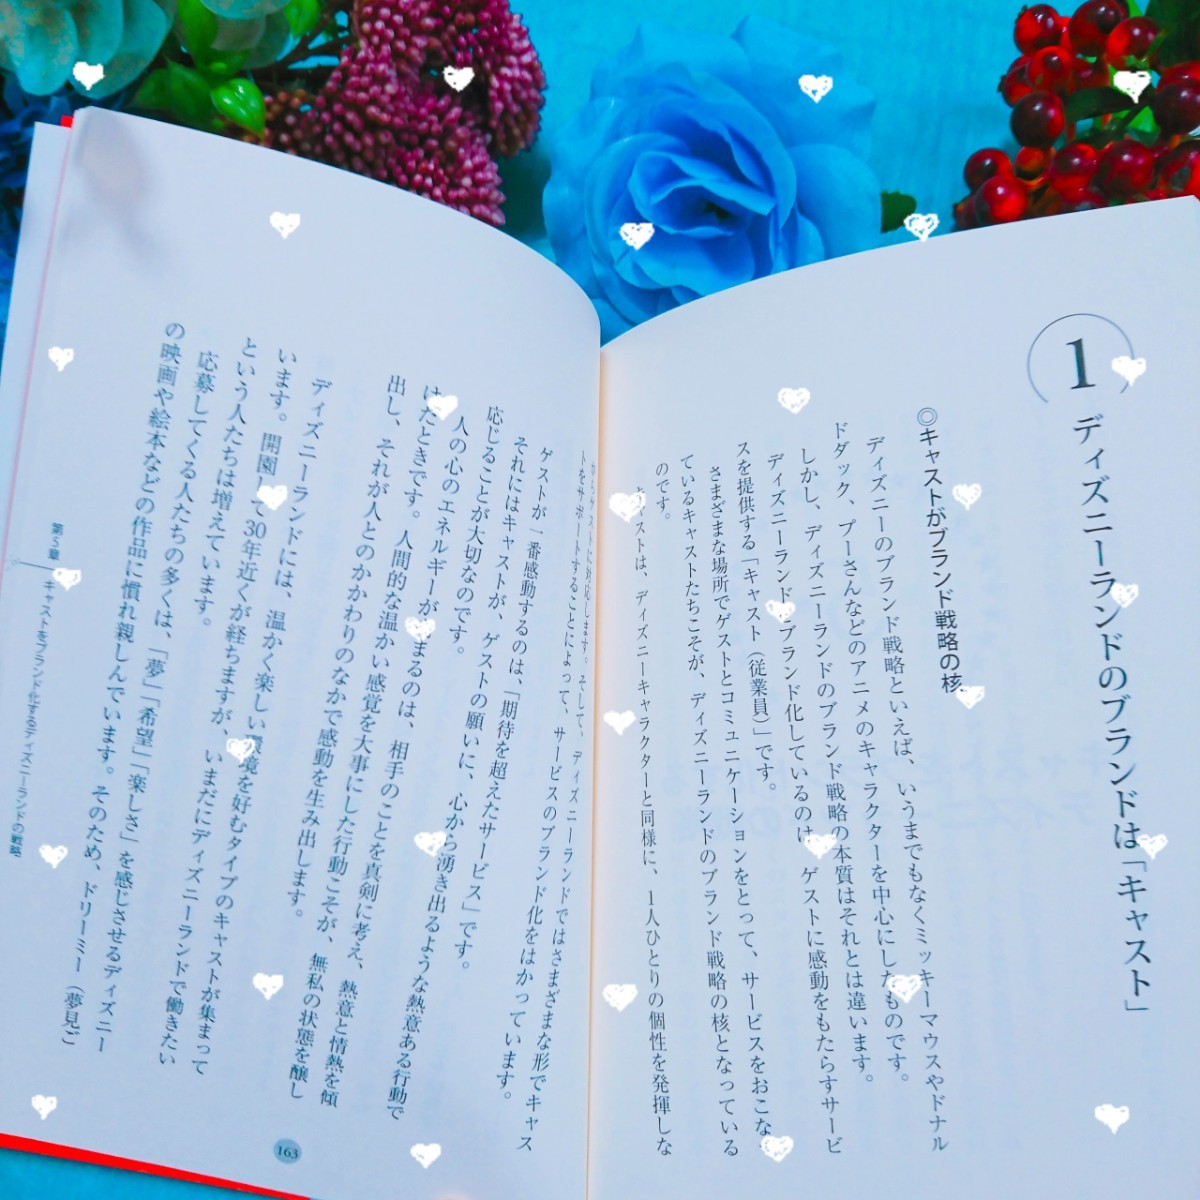 1
ディズニーランドのブランドは「キャスト」
◎キャストがブランド戦略の核
ディズニーのブランド戦略といえば、いうまでもなくミッキーマウスやドナル
ドダック、プーさんなどのアニメのキャラクターを中心にしたものです。
しかし、ディズニーランドのブランド戦略の本質はそれとは違います。
ディズニーランドがブランド化しているのは、ゲストに感動をもたらすサービ
スを提供する「キャスト（従業員）」です。
さまざまな場所でゲストとコミュニケーションをとって、サービスをおこなっ
ているキャストたちこそが、ディズニーランドのブランド戦略の核となっている
のです。
キャストは、ディズニーキャラクターと同様に、1人ひとりの個性を発揮しな
がらゲストに対応します。そして、ディズニーランドではさまざまな形でキャス
トをサポートすることによって、サービスのブランド化をはかっています。
ゲストが一番感動するのは、「期待を超えたサービス」です。
それにはキャストが、ゲストの願いに、心から湧き出るような熱意ある行動で
応じることが大切なのです。
人の心のエネルギーが高まるのは、相手のことを真剣に考え、熱意と情熱を傾
けたときです。人間的な温かい感覚を大事にした行動こそが、無私の状態を醸し
出し、それが人とのかかわりのなかで感動を生み出します。
ディズニーランドには、温かく楽しい環境を好むタイプのキャストが集まって
います。開園して30年近くが経ちますが、いまだにディズニーランドで働きたい
という人たちは増えています。
応募してくる人たちの多くは、「夢」「希望」「楽しさ」を感じさせるディズニー
の映画や絵本などの作品に慣れ親しんでいます。そのため、ドリーミー（夢見ご
第5章
キャストをブランド化するディズニーランドの戦略
163